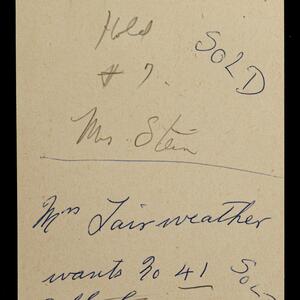 Hold
SOLD
# 7.
Mrs. Stein
Mrs Fairweather
wants No 41
SOLD